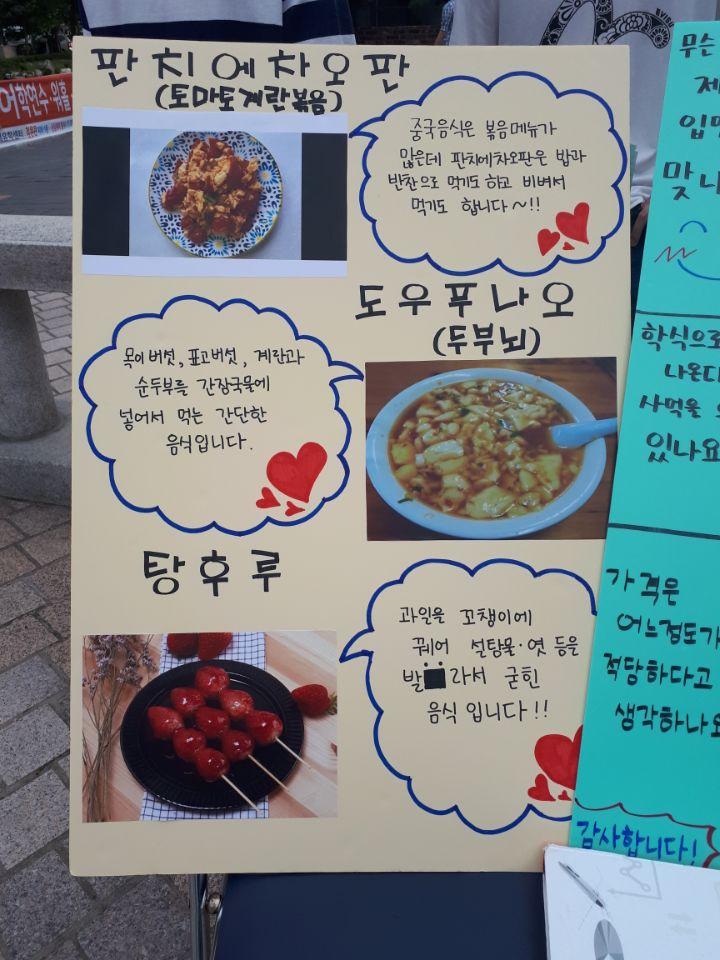 판치에차오판
(토마토계란볶음)
중국음식은 볶음메뉴가
많은데 판치에차오판은 밥과
반찬으로 먹기도 하고 비벼서
먹기도 합니다~!!
도우푸나오
(두부뇌)
목이버섯, 표고버섯, 계란과
순두부를 간장국물에
넣어서 먹는 간단한
음식입니다.
탕후루
과일을 꼬챙이에
꿰어 설탕물·엿 등을
발라서 굳힌
음식입니다!!
어학연수·워홀
무슨
제
입맛
맞나
학식으로
나온다
사먹을
있나요
가격은
어느정도가
적당하다고
생각하나요
감사합니다!